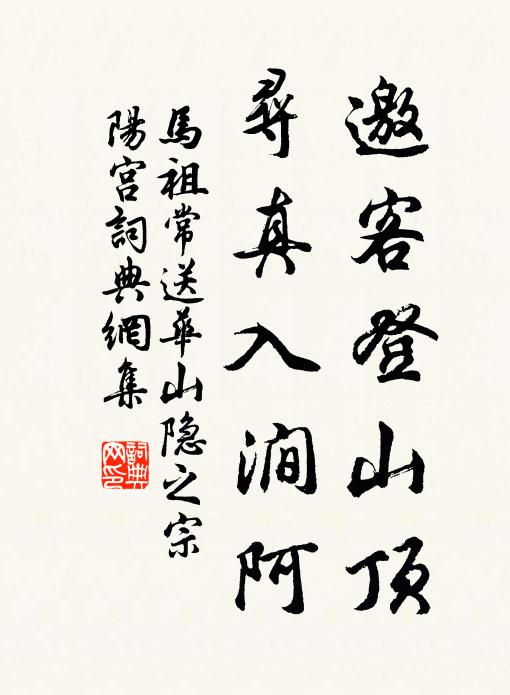 邀客登山頂
尋真入澗阿
馬祖常送華山隐之宗
陽宮詞典網集
詞典
网印